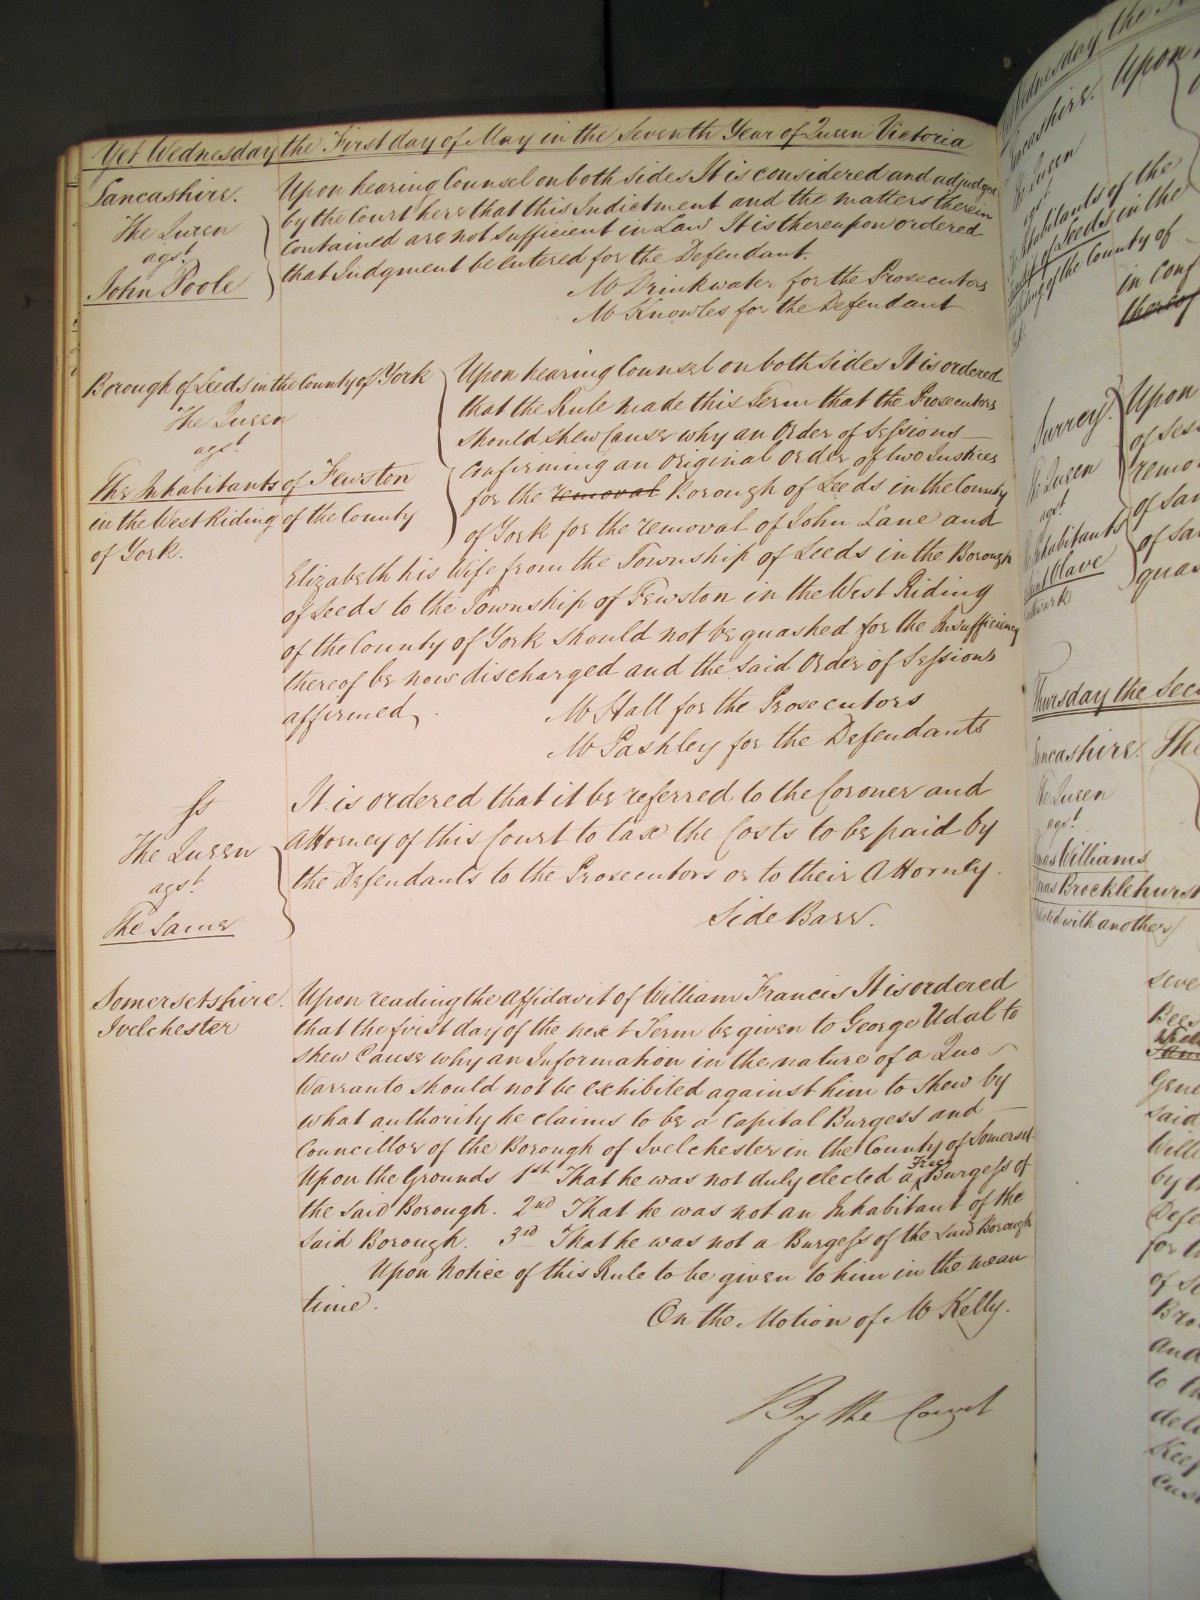 Yet Wednesday the First day of May in the Seventh Year of Queen Victoria
Lancashire.
The Queen
agst
John Poole
Upon hearing Counsel on both sides It is considered and adjudged
by the Court here that this Indictment and the matters therein
contained are not sufficient in Law It is thereupon ordered
that Judgment be entered for the Defendant.
Mr Drinkwater for the Prosecutors
Mr Knowles for the Defendant
Borough of Leeds in the County of York
The Queen
agst
The Inhabitants of Fewston
in the West Riding of the County
of York.
Upon hearing Counsel on both sides It is ordered
that the Rule made this Term that the Prosecutors
should shew cause why an Order of Sessions
confirming an original order of two Justices
for the removal Borough of Leeds in the County
of York for the removal of John Lane and
Elizabeth his Wife from the Township of Leeds in the Borough
of Leeds to the Township of Fewston in the West Riding
of the County of York should not be quashed for the Insufficiency
thereof be now discharged and the said Order of Sessions
affirmed.
Mr Hall for the Prosecutors
Mr Pashley for the Defendants
Ss
The Queen
agst
The Same
It is ordered that it be referred to the Coroner and
Attorney of this Court to tax the Costs to be paid by
the Defendants to the Prosecutors or to their Attorney.
Side Barr.
Somersetshire.
Ivelchester
Upon reading the Affidavit of William Francis It is ordered
that the first day of the next Term be given to George Udal to
shew Cause why an Information in the nature of a Quo
Warranto should not be exhibited against him to shew by
what authority he claims to be a Capital Burgess and
Councillor of the Borough of Ivelchester in the County of Somerset
Upon the Grounds 1st That he was not duly elected a Free Burgess of
the said Borough. 2nd That he was not an Inhabitant of the
said Borough. 3rd That he was not a Burgess of the said Borough
Upon Notice of this Rule to be given to him in the mean
time.
On the Motion of Mr Kelly.
By the Court
Wednesday the
Lancashire.
Upon
The Queen
agst
Inhabitants of the
of Leeds in the
of the County of
in conf
thereof
Surrey.
The Queen
agst
Inhabitants
Saint Olave
Southwark
Upon
of Sess
remo
of San
of Sa
quas
Thursday the Sec
Lancashire.
The
The Queen
agst
Williams
Brocklehurst
with another
seve
Gene
said
Will
by th
Defe
for th
of S
Bro
and
to th
deli
Keep
cus